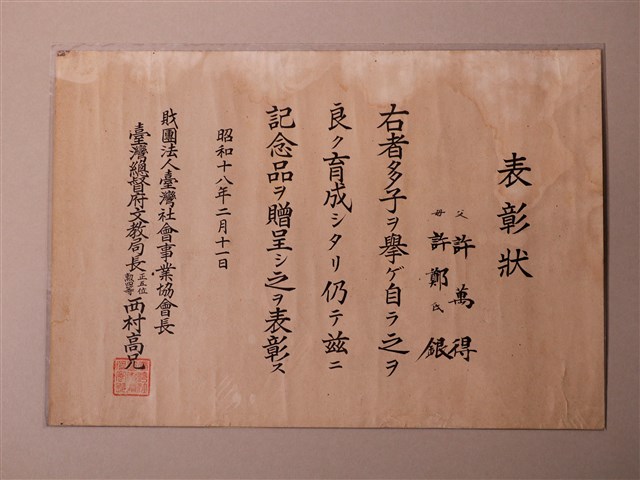 表彰狀
父 許萬得
母 許鄭氏銀
右者多子ヲ擧ゲ自ラ之ヲ
良ク育成シタリ仍テ茲ニ
記念品ヲ贈呈シ之ヲ表彰ス
昭和十八年二月十一日
財團法人臺灣社會事業協會長
臺灣總督府文教局長 正五位 勳四等 西村高兄